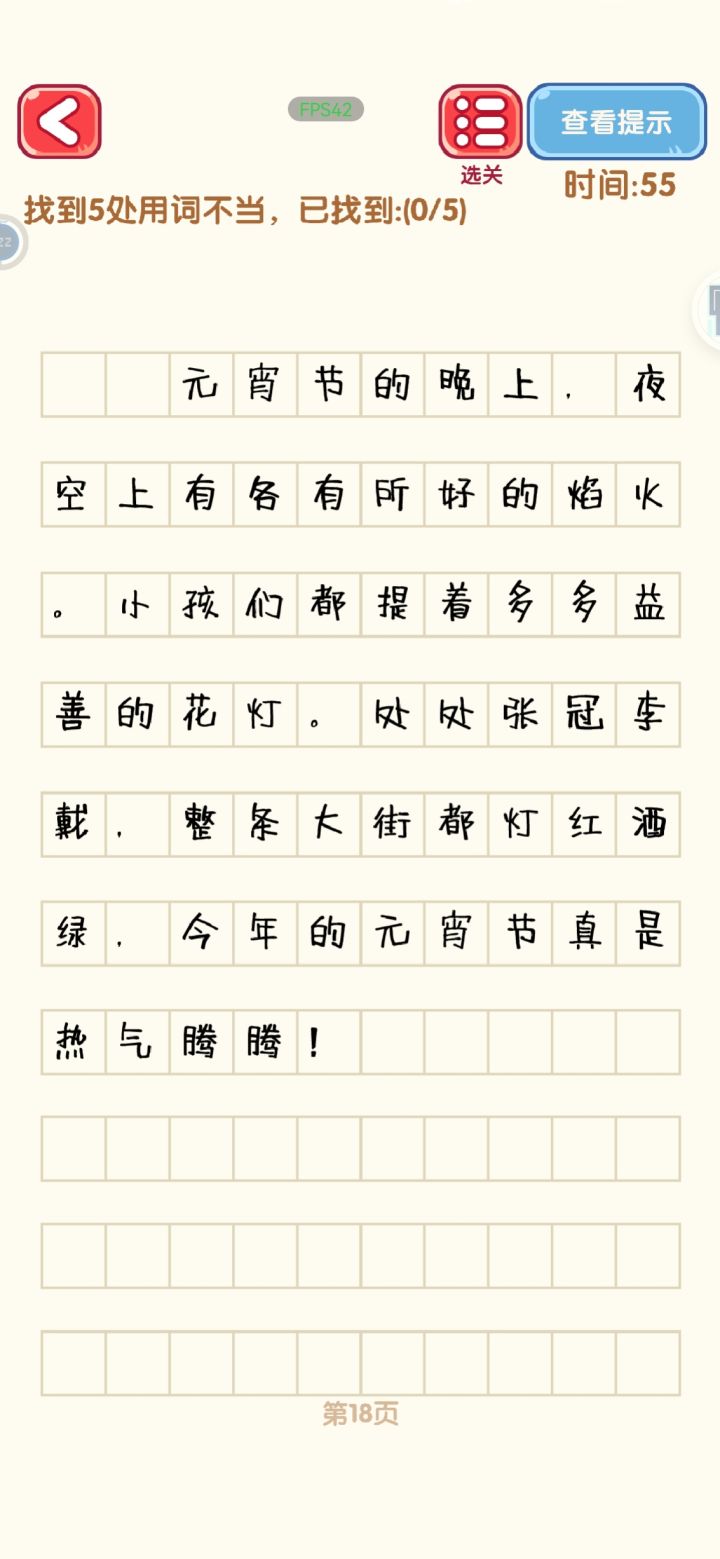 FPS42
查看提示
选关
时间:55
找到5处用词不当，已找到:(0/5)
zz
元宵节的晚上，夜
空上有各有所好的焰火
。小孩们都提着多多益
善的花灯。处处张冠李
戴，整条大街都灯红酒
绿，今年的元宵节真是
热气腾腾！
第18页